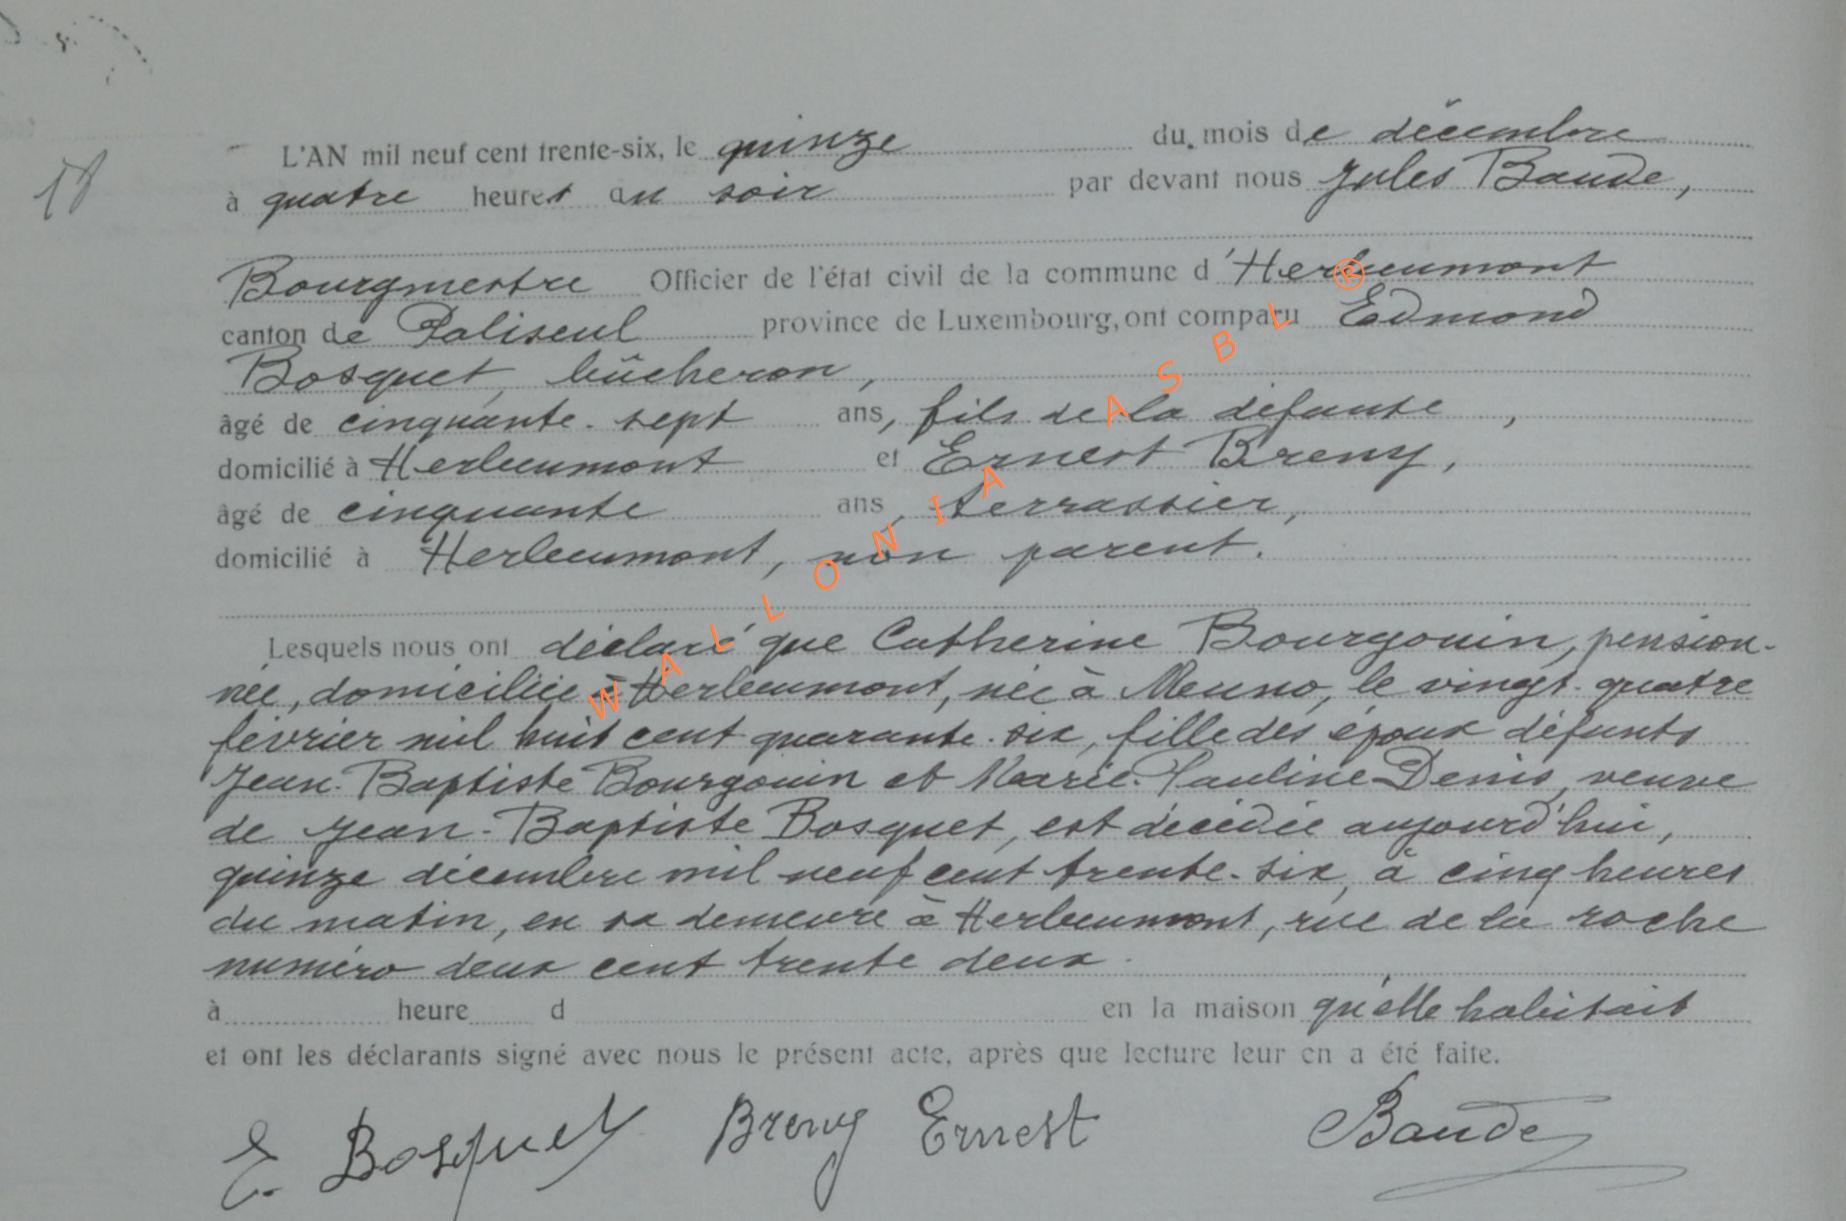 L'AN mil neuf cent trente-six, le quinze du mois de décembre
18
à quatre heures du soir par devant nous Jules Baude,
Bourgmestre Officier de l'état civil de la commune d'Herbeumont
canton de Paliseul province de Luxembourg, ont comparu Edmond
Bosquet, bûcheron,
âgé de cinquante-sept ans, fils de la défunte,
domicilié à Herbeumont et Ernest Breny,
âgé de cinquante ans, terrassier,
domicilié à Herbeumont, non parent.
Lesquels nous ont déclaré que Catherine Bourgouin, pension-
née, domiciliée à Herbeumont, née à Meuno, le vingt-quatre
février mil huit cent quarante-six, fille des époux défunts
Jean-Baptiste Bourgouin et Marie-Pauline Denis, veuve
de Jean-Baptiste Bosquet, est décédée aujourd'hui,
quinze décembre mil neuf cent trente-six, à cinq heures
du matin, en sa demeure à Herbeumont, rue de la roche
numéro deux cent trente deux.
à heure d en la maison qu'elle habitait
et ont les déclarants signé avec nous le présent acte, après que lecture leur en a été faite.
E. Bosquet Breny Ernest Baude
WALLONIA ASBL ®